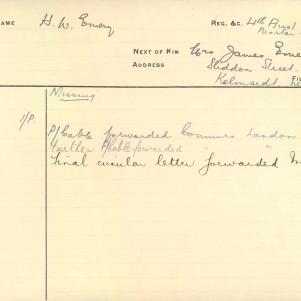 NAME H. W. Emery REG. &C. 4th Aust
Mortar
NEXT OF KIN Mrs James Eme
ADDRESS Sheddon Street,
FI
Missing
1/P.
P/Cable forwarded Commrs London
Further P/Cable forwarded " "
Final circular letter forwarded